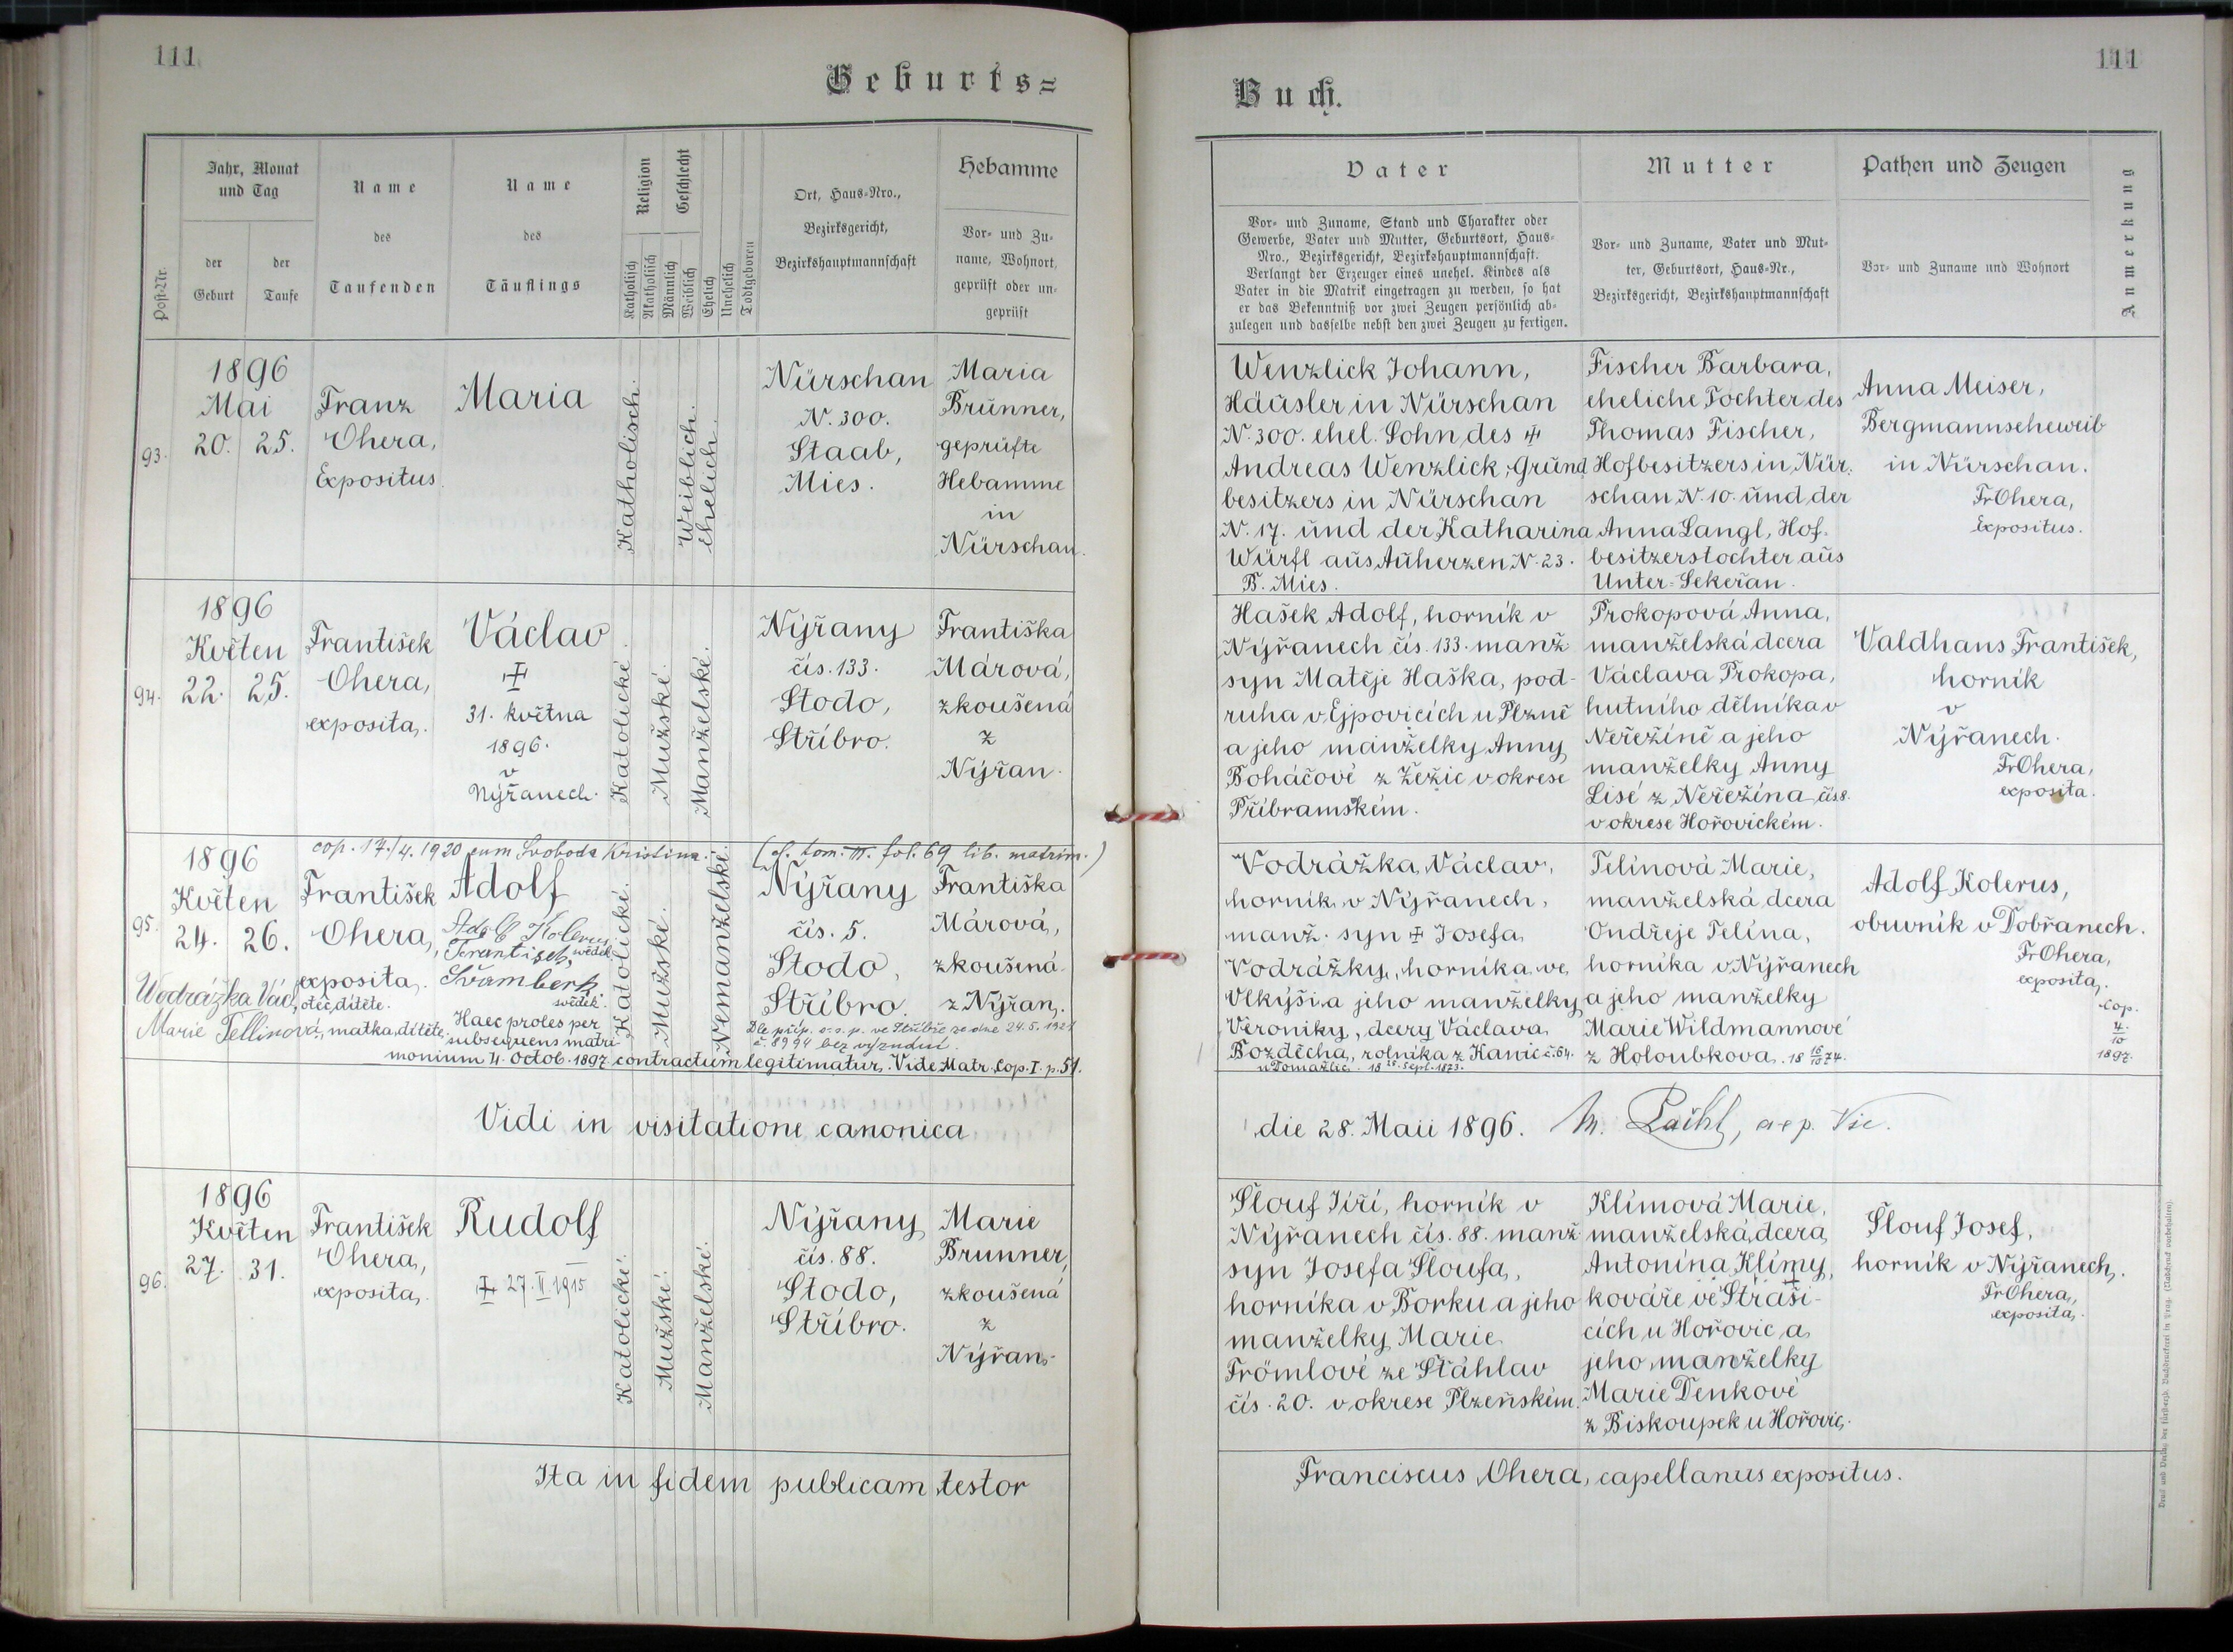 111
Geburts=
Jahr, Monat
und Tag
der
Geburt
der
Taufe
Post-Nr.
Name
des
Taufenden
Name
des
Täuflings
Religion
Katholisch
Akatholisch
Geschlecht
Männlich
Weiblich
Ehelich
Unehelich
Todtgeboren
Ort, Haus-Nro.,
Bezirksgericht,
Bezirkshauptmannschaft
Hebamme
Vor- und Zu-
name, Wohnort,
geprüft oder un-
geprüft
93.
1896
Mai
20. 25.
Franz
Ohera,
Expositus.
Maria
Katholisch.
Weiblich.
Ehelich.
Nürschan
N. 300.
Staab,
Mies.
Maria
Brunner,
geprüfte
Hebamme
in
Nürschan.
94.
1896
Květen
22. 25.
František
Ohera,
exposita.
Václav
31. května
1896.
v
Nýřanech.
Katolické.
Mužské.
Manželské.
Nýřany
čís. 133.
Stodo,
Stříbro.
Františka
Márová,
zkoušená
z
Nýřan.
cop. 17./4. 1920 cum Svoboda Kristina. (cf. tom. III. fol. 69 lib. matrim.)
95.
1896
Květen
24. 26.
František
Ohera,
exposita.
Adolf
Adolf Kolerus
svědek
Frantisek
Švamberk
svědek
Wodrážka Václ, otec dítěte.
Marie Tellinová, matka dítěte.
Haec proles per
subsequens matri-
monium 4. Octob. 1897 contractum legitimatur. Vide Matr. Cop. I. p. 51.
Katolické.
Mužské.
Nemanželské.
Nýřany
čís. 5.
Stodo,
Stříbro.
Františka
Márová,
zkoušená
z Nýřan.
ve Stříbře ze dne 24.5.1921
č. 8994 bez vyznání.
Vidi in visitatione canonica
96.
1896
Květen
27. 31.
František
Ohera,
exposita.
Rudolf
27. II. 1915
Katolické.
Mužské.
Manželské.
Nýřany
čís. 88.
Stodo,
Stříbro.
Marie
Brunner,
zkoušená
z
Nýřan.
Ita in fidem publicam testor
111
Buch.
Vater
Vor- und Zuname, Stand und Charakter oder
Gewerbe, Vater und Mutter, Geburtsort, Haus-
Nro., Bezirksgericht, Bezirkshauptmannschaft.
Verlangt der Erzeuger eines unehel. Kindes als
Vater in die Matrik eingetragen zu werden, so hat
er das Bekenntniß vor zwei Zeugen persönlich ab-
zulegen und dasselbe nebst den zwei Zeugen zu fertigen.
Mutter
Vor- und Zuname, Vater und Mut-
ter, Geburtsort, Haus-Nr.,
Bezirksgericht, Bezirkshauptmannschaft
Pathen und Zeugen
Vor- und Zuname und Wohnort
Anmerkung
Wenzlick Johann,
Häusler in Nürschan
N. 300. ehel. Sohn des
Andreas Wenzlick, Grund
besitzers in Nürschan
N. 17. und der Katharina
Würfl aus Auherzen N. 23.
B. Mies.
Fischer Barbara,
eheliche Tochter des
Thomas Fischer,
Hofbesitzers in Nür-
schan N. 10. und der
Anna Langl, Hof-
besitzerstochter aus
Unter-Sekeřan.
Anna Meiser,
Bergmannseheweib
in Nürschan.
FrOhera,
Expositus.
Hašek Adolf, horník v
Nýřanech čís. 133. manž.
syn Matěje Haška, pod-
ruha v Ejpovicích u Plzně
a jeho manželky Anny
Boháčové z Žežic v okrese
Příbramském.
Prokopová Anna,
manželská dcera
Václava Prokopa,
hutního dělníka v
Neřežíně a jeho
manželky Anny
Lisé z Neřežína čís8.
v okrese Hořovickém.
Valdhans František,
horník
v
Nýřanech.
FrOhera,
exposita.
Vodrážka Václav,
horník v Nýřanech,
manž. syn Josefa
Vodrážky, horníka ve
Vlkýši a jeho manželky
Veroniky, dcery Václava
Bozděcha, rolníka z Kanic č. 64.
u Domažlic. 18 25. Sept. 1873.
Telínová Marie,
manželská dcera
Ondřeje Telína,
horníka v Nýřanech
a jeho manželky
Marie Wildmannové
z Holoubkova. 18 16/10 74.
Adolf Kolerus,
obuvník v Dobřanech.
FrOhera,
exposita.
Cop.
4.
10
1897.
die 28. Maii 1896. aep. Vic.
Šlouf Jiří, horník v
Nýřanech čís. 88. manž.
syn Josefa Šloufa,
horníka v Borku a jeho
manželky Marie
Frömlové ze Šťáhlav
čís. 20. v okrese Plzeňském.
Klímová Marie,
manželská dcera
Antonína Klímy,
kováře ve Straši-
cích u Hořovic a
jeho manželky
Marie Denkové
z Biskoupek u Hořovic.
Šlouf Josef,
horník v Nýřanech.
FrOhera,
exposita.
Franciscus Ohera, capellanus expositus.